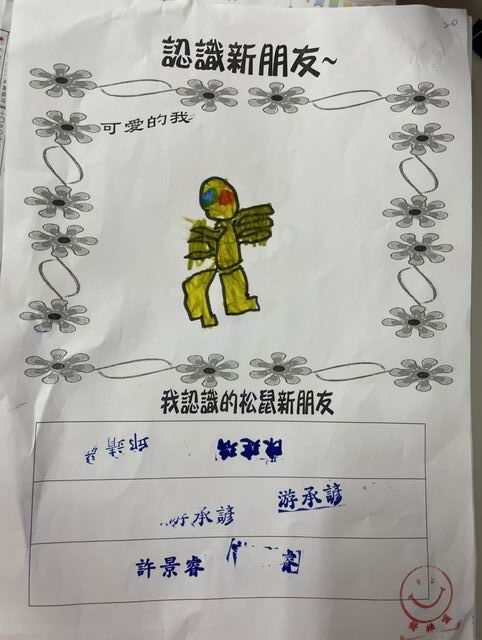 20
認識新朋友~
可愛的我
我認識的松鼠新朋友
邱靖
游承諺
承諺
許景睿
睿